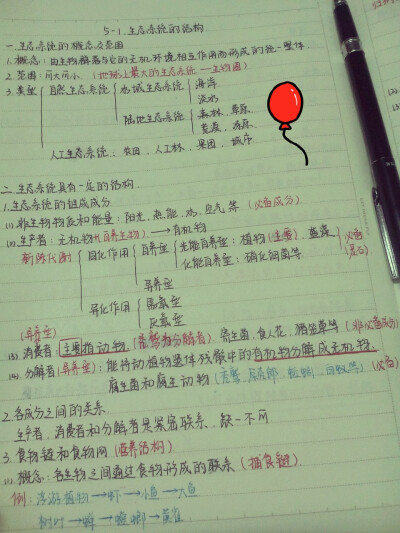 5-1.生态系统的结构.
一.生态系统的概念及范围
1.概念:由生物群落与它的无机环境相互作用而形成的统一整体.
2.范围:可大可小.(地球上最大的生态系统——生物圈)
3.类型 自然生态系统 水域生态系统 海洋
淡水
陆地生态系统 森林、草原
荒漠、冻原
人工生态系统:农田、人工林、果园、城市
二.生态系统具有一定的结构.
1.生态系统的组成成分
(1).非生物物质和能量:阳光、热能、水、空气等(必备成分)
(2).生产者:无机物(自养生物)→有机物
新陈代谢 同化作用 自养型 光能自养型:植物(主要)、蓝藻
化能自养型:硝化细菌等
异养型
异化作用 需氧型
厌氧型
(异养型)
(3).消费者:主要指动物 寄生菌、食人花、猪笼草等(非必备成分)
(4).分解者(异养型):能将动植物遗体残骸中的有机物分解成无机物.
腐生菌和腐生动物(秃鹫、屎壳郎、蚯蚓、白蚁等)(必备)
2.各成分之间的关系.
生产者、消费者和分解者是紧密联系,缺一不可
3.食物链和食物网(营养结构)
(1).概念:各生物之间通过食物形成的联系(捕食链).
例:浮游植物→虾→小鱼→大鱼
树叶→蝉→螳螂→黄雀